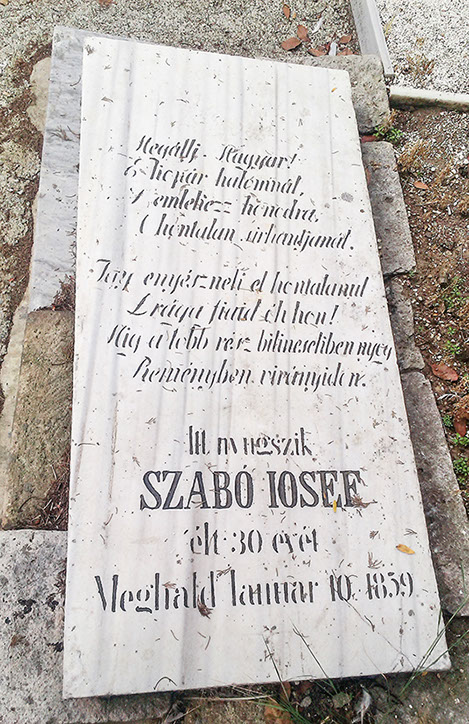 Megállj Magyar!
E kopár halomnál,
S emlekezz honodra,
A hontalan sirhantjanál.
Igy enyésznek el hontalanul
Drága fiaid oh hon!
Mig a tobb rész bilincsekben nyög
Reményben virányidon.
Itt nyugszik
SZABÓ IOSEF
élt 30 évét
Meghald Ianuar 10. 1859